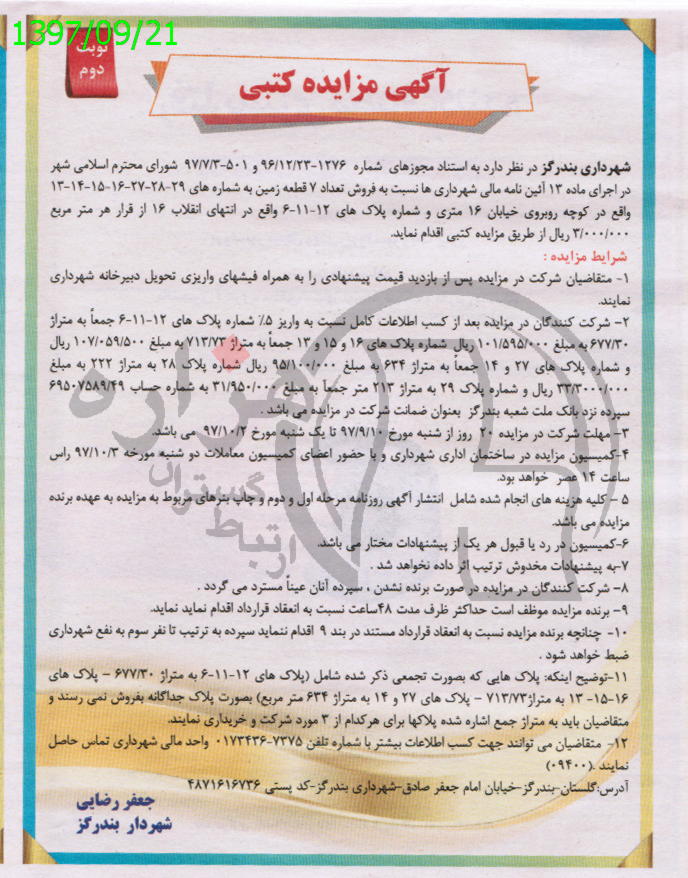 1397/09/21
نوبت
دوم
آگهی مزایده کتبی
شهرداری بندرگز در نظر دارد به استناد مجوزهای شماره ۱۲۷۶-۹۶/۱۲/۲۳ و ۵۰۱-۹۷/۷/۳ شورای محترم اسلامی شهر
در اجرای ماده ۱۳ آئین نامه مالی شهرداری ها نسبت به فروش تعداد ۷ قطعه زمین به شماره های ۲۹-۲۸-۲۷-۱۶-۱۵-۱۴-۱۳
واقع در کوچه روبروی خیابان ۱۶ متری و شماره پلاک های ۱۲-۱۱-۶ واقع در انتهای انقلاب ۱۶ از قرار هر متر مربع
۳/۰۰۰/۰۰۰ ریال از طریق مزایده کتبی اقدام نماید.
شرایط مزایده :
۱- متقاضیان شرکت در مزایده پس از بازدید قیمت پیشنهادی را به همراه فیشهای واریزی تحویل دبیرخانه شهرداری
نمایند.
۲- شرکت کنندگان در مزایده بعد از کسب اطلاعات کامل نسبت به واریز ۵٪ شماره پلاک های ۱۲-۱۱-۶ جمعاً به متراژ
۶۷۷/۳۰ به مبلغ ۱۰۱/۵۹۵/۰۰۰ ریال شماره پلاک های ۱۶ و ۱۵ و ۱۳ جمعاً به متراژ ۷۱۳/۷۳ به مبلغ ۱۰۷/۰۵۹/۵۰۰ ریال
و شماره پلاک های ۲۷ و ۱۴ جمعاً به متراژ ۶۳۴ به مبلغ ۹۵/۱۰۰/۰۰۰ ریال شماره پلاک ۲۸ به متراژ ۲۲۲ به مبلغ
۳۳/۳۰۰۰/۰۰۰ ریال و شماره پلاک ۲۹ به متراژ ۲۱۳ متر جمعاً به مبلغ ۳۱/۹۵۰/۰۰۰ به شماره حساب ۶۹۵۰۷۵۸۹/۴۹
سپرده نزد بانک ملت شعبه بندرگز بعنوان ضمانت شرکت در مزایده می باشد .
۳- مهلت شرکت در مزایده ۲۰ روز از شنبه مورخ ۹۷/۹/۱۰ تا یک شنبه مورخ ۹۷/۱۰/۲ می باشد.
۴-کمیسیون مزایده در ساختمان اداری شهرداری و با حضور اعضای کمیسیون معاملات دو شنبه مورخه ۹۷/۱۰/۳ راس
ساعت ۱۴ عصر خواهد بود.
۵ - کلیه هزینه های انجام شده شامل انتشار آگهی روزنامه مرحله اول و دوم و چاپ بنرهای مربوط به مزایده به عهده برنده
مزایده می باشد.
۶-کمیسیون در رد یا قبول هر یک از پیشنهادات مختار می باشد.
۷-به پیشنهادات مخدوش ترتیب اثر داده نخواهد شد .
۸- شرکت کنندگان در مزایده در صورت برنده نشدن ، سپرده آنان عیناً مسترد می گردد .
۹- برنده مزایده موظف است حداکثر ظرف مدت ۴۸ساعت نسبت به انعقاد قرارداد اقدام نماید نماید.
۱۰- چنانچه برنده مزایده نسبت به انعقاد قرارداد مستند در بند ۹ اقدام ننماید سپرده به ترتیب تا نفر سوم به نفع شهرداری
ضبط خواهد شود .
۱۱-توضیح اینکه: پلاک هایی که بصورت تجمعی ذکر شده شامل (پلاک های ۱۲-۱۱-۶ به متراژ ۶۷۷/۳۰ - پلاک های
۱۶-۱۵- ۱۳ به متراژ۷۱۳/۷۳ - پلاک های ۲۷ و ۱۴ به متراژ ۶۳۴ متر مربع) بصورت پلاک جداگانه بفروش نمی رسند و
متقاضیان باید به متراژ جمع اشاره شده پلاکها برای هرکدام از ۳ مورد شرکت و خریداری نمایند.
۱۲- متقاضیان می توانند جهت کسب اطلاعات بیشتر با شماره تلفن ۷۳۷۵-۰۱۷۳۴۳۶ واحد مالی شهرداری تماس حاصل
نمایند .(۰۹۴۰۰)
آدرس:گلستان-بندرگز-خیابان امام جعفر صادق-شهرداری بندرگز-کد پستی ۴۸۷۱۶۱۶۷۳۶
جعفر رضایی
شهردار بندرگز
هزاره
ارتباط گستران